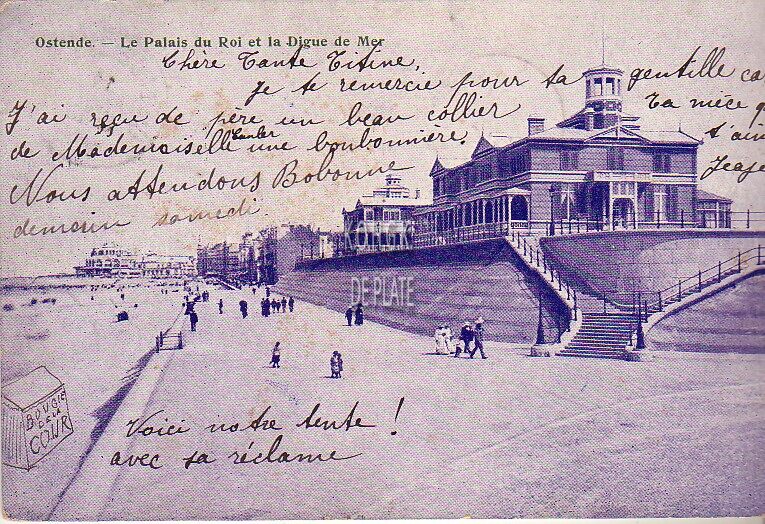 Ostende. — Le Palais du Roi et la Digue de Mer
Chère Tante Titine,
Je te remercie pour ta gentille ca
J'ai reçu de père un beau collier
Ta nièce q
de Mademoiselle une bonbonnière.
t'aim
Nous attendons Bobonne
demain samedi.
DE PLATE
BOUGIE
DE LA
COUR
Voici notre tente !
avec sa réclame